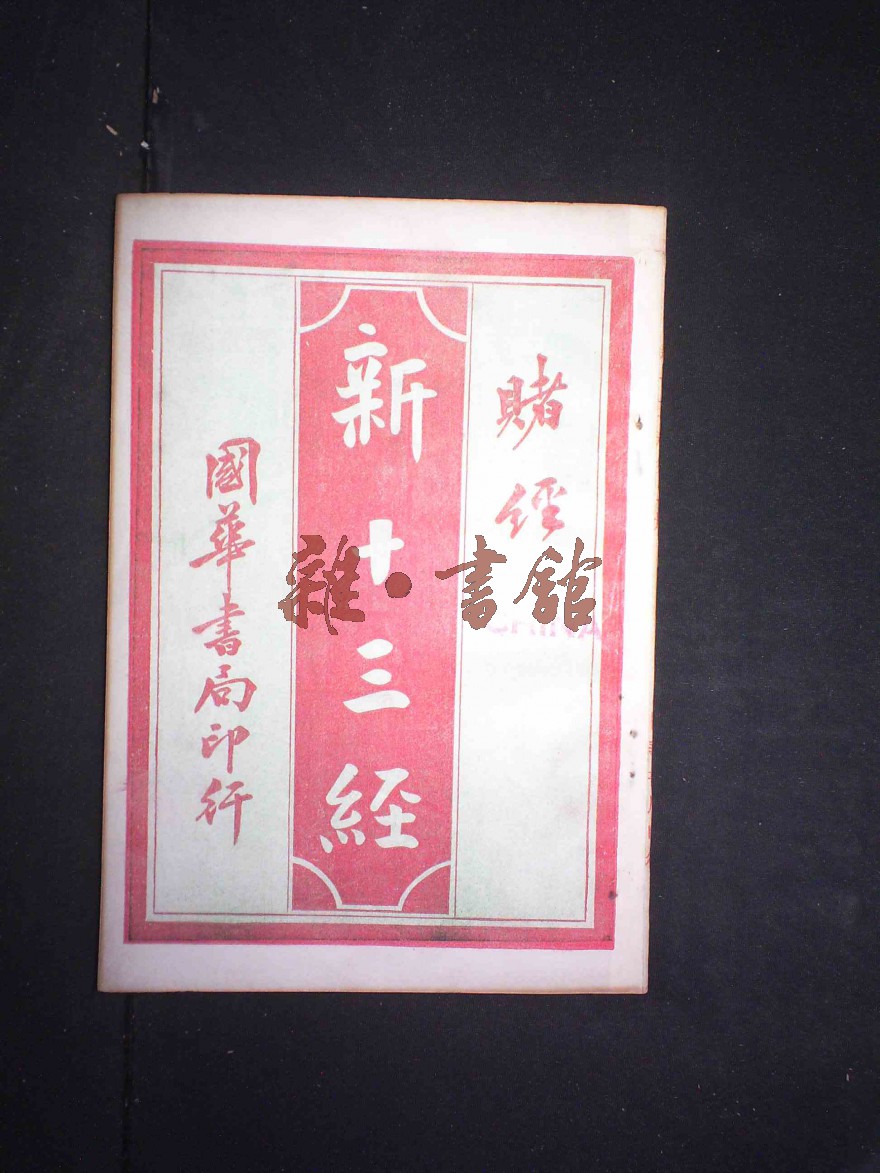 賭經
新十三經
國華書局印行
雜·書館
CHINA